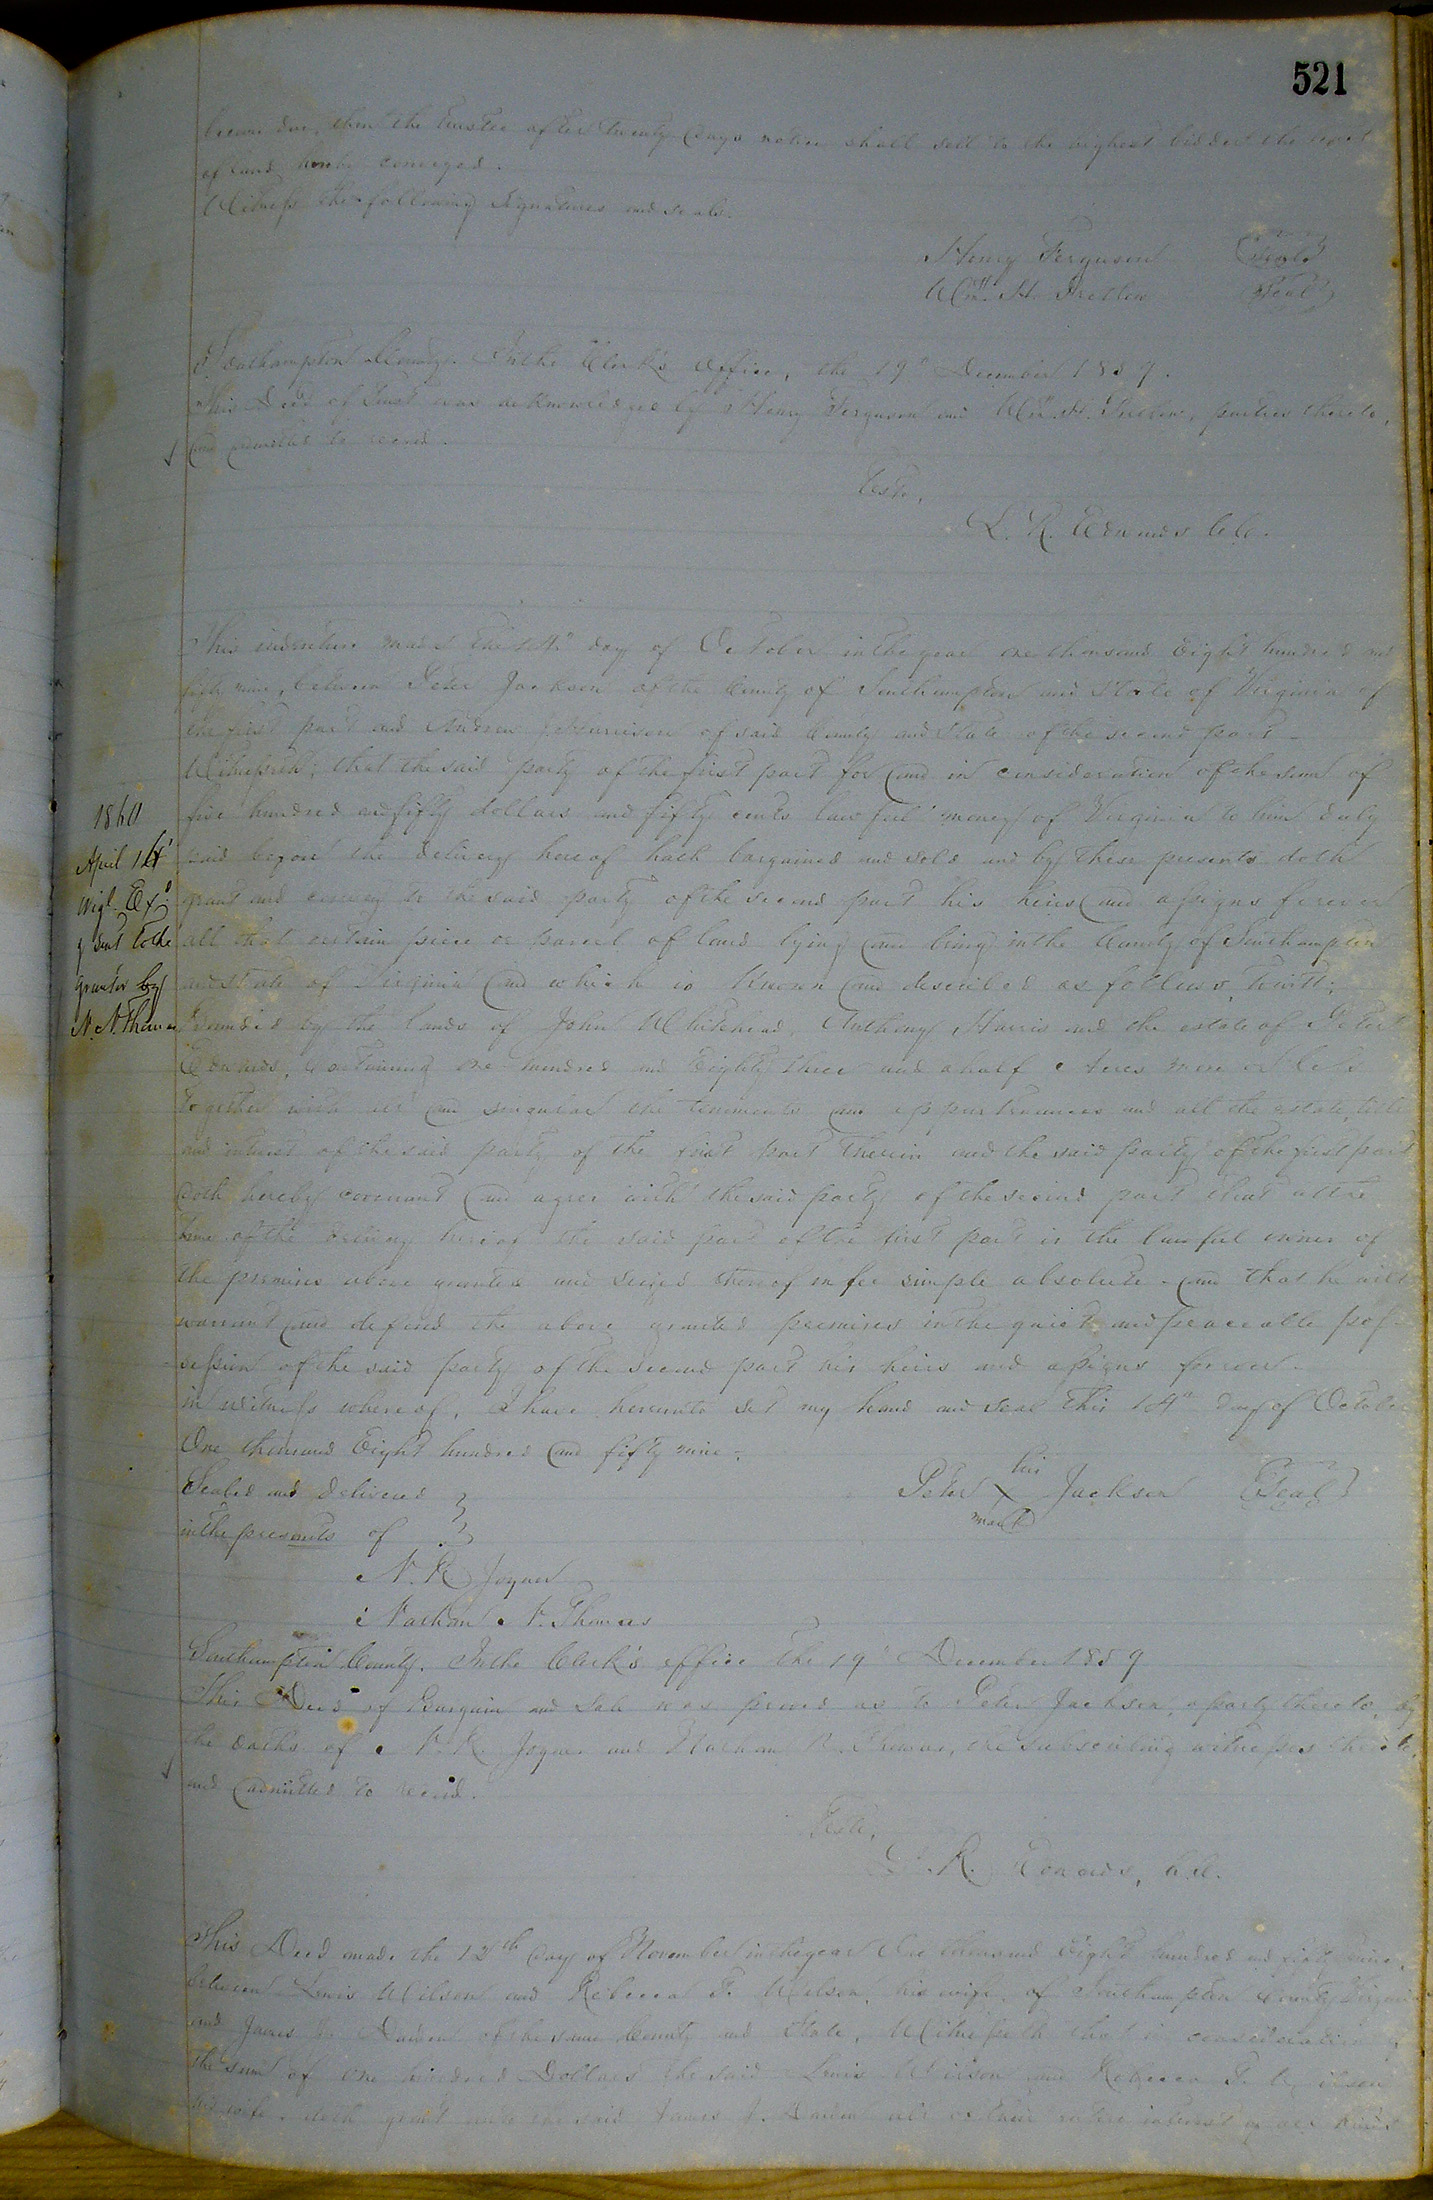 521
become due, then the Trustee after twenty days notice shall sell to the highest bidder the tract
of land hereby conveyed.
Witness the following signatures and seals.
Henry Ferguson (Seal)
Wm. H. Pretlow (Seal)
Southampton County. In the Clerk's Office, the 19" December 1859.
This Deed of Trust was acknowledged by Henry Ferguson and Wm. H. Pretlow, parties thereto,
and admitted to record.
Teste,
L. R. Edwards C.C.
This indenture made the 14" day of October in the year one thousand Eight hundred and
fifty nine, between Peter Jackson of the County of Southampton and State of Virginia of
the first part and Andrew J. of said County and State of the second part –
Witnesseth; that the said party of the first part for and in consideration of the sum of
five hundred and fifty dollars and fifty cents lawful money of Virginia to him duly
paid before the delivery hereof hath bargained and sold and by these presents doth
grant and convey to the said party of the second part his heirs and assigns forever
all that certain piece or parcel of land lying and being in the County of Southampton
and State of Virginia and which is Known and described as follows, towitt;
Bounded by the lands of John Whitehead Anthony Harris and the estate of Peter
Edwards, Containing one hundred and Eighty three and a half Acres more or less
together with all and singular the tenements and appurtenances and all the estate, title
and interest of the said party of the first part therein and the said party of the first part
doth hereby covenant and agree with the said party of the second part that at the
time of the delivery hereof the said part of the first part is the lawful owner of
the premises above granted and seized thereof in fee simple absolute – and that he will
warrant and defend the above granted premises in the quiet and peaceable pos-
session of the said party of the second part his heirs and assigns forever –
in witness whereof, I have hereunto set my hand and seal this 14" day of October
One thousand Eight hundred and fifty nine –
Sealed and delivered
in the presents of
his
Peter X Jackson (Seal)
mark
N. R. Joyner
Nathan N. Thomas
1860
April 14
Origl. Exd.
& sent to the
grantor by
N. N. Thomas
Southampton County. In the Clerk's office the 19" December 1859
This Deed of Bargain and Sale was proved as to Peter Jackson, a party thereto, by
the oaths of N. R. Joyner and Nathan N. Thomas, the subscribing witnesses thereto,
and admitted to record.
Teste,
L. R. Edwards, C.C.
This Deed made the 12th day of November in the year One thousand Eight hundred and fifty nine,
between Lewis Wilson and Rebecca F. Wilson, his wife, of Southampton County Virginia
and James J. of the same County and State, Witnesseth that in consideration
the sum of one hundred Dollars the said Lewis Wilson and Rebecca F. Wilson
his wife, doth grant unto the said James J. all of their entire interest